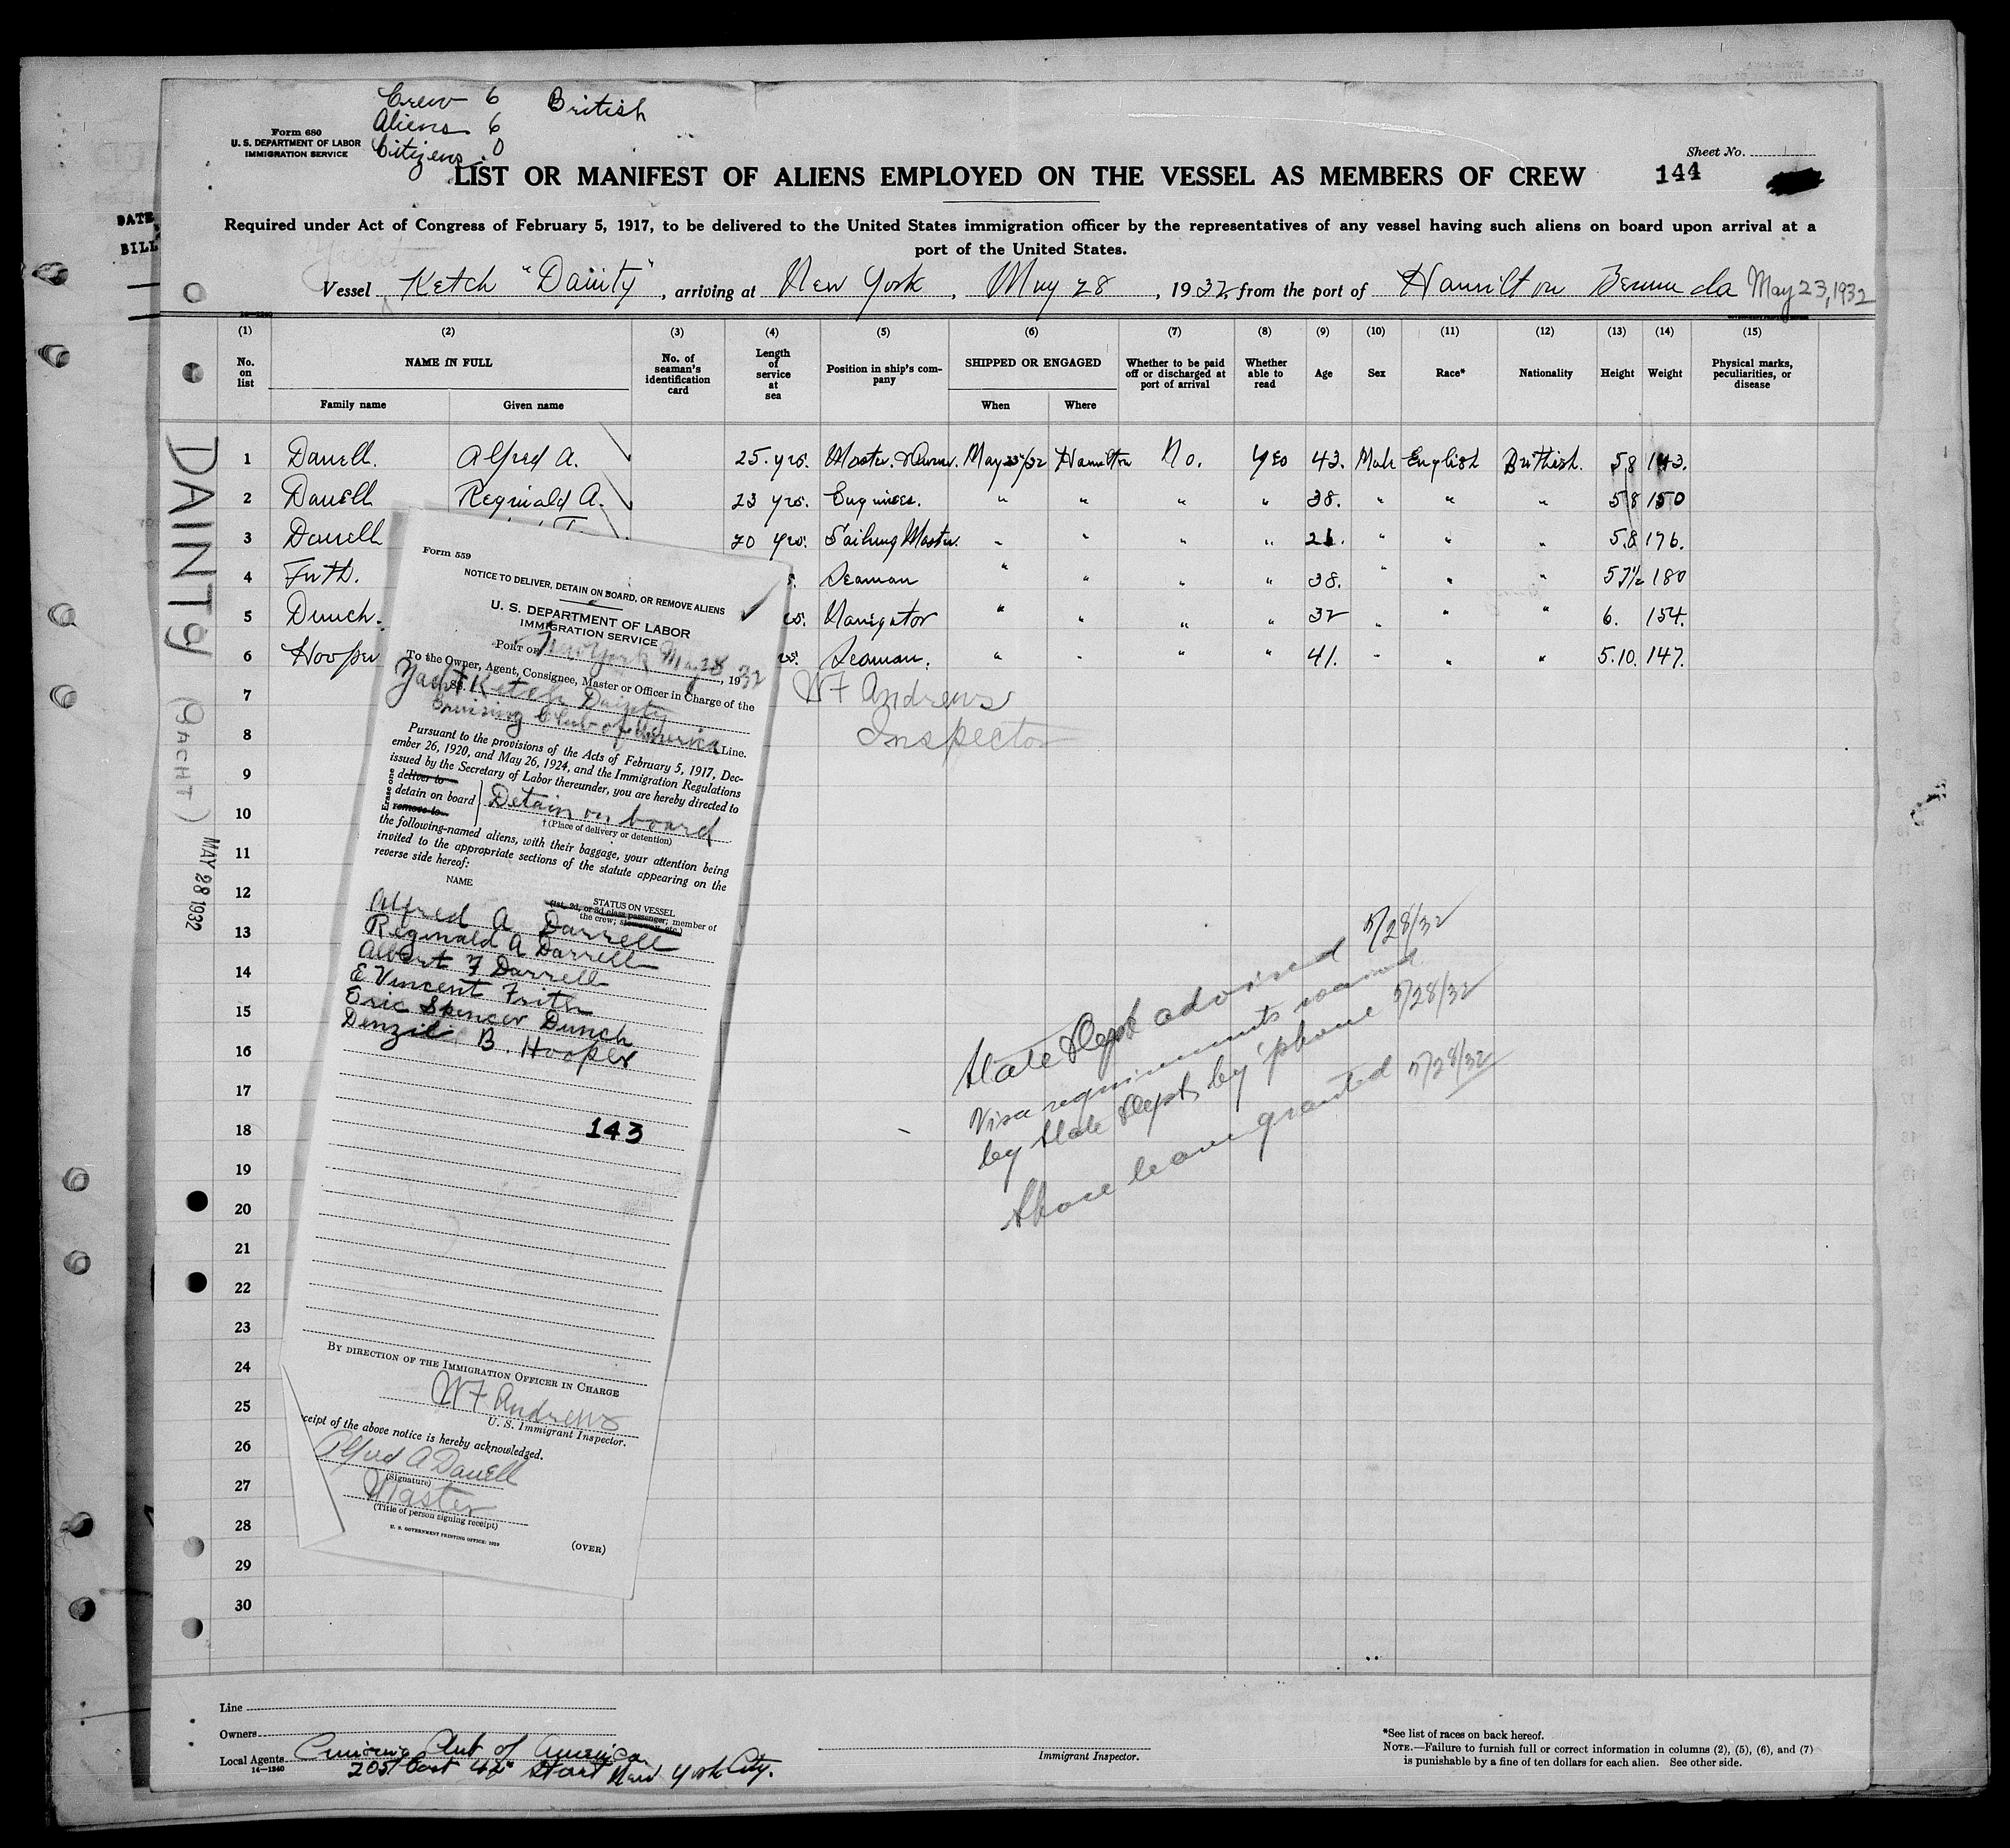 Crew 6 British
Aliens 6
Citizens 0
Form 680
U. S. DEPARTMENT OF LABOR
IMMIGRATION SERVICE
Sheet No.
LIST OR MANIFEST OF ALIENS EMPLOYED ON THE VESSEL AS MEMBERS OF CREW
144
DATE
BILL
Required under Act of Congress of February 5, 1917, to be delivered to the United States immigration officer by the representatives of any vessel having such aliens on board upon arrival at a
port of the United States.
Yacht
Vessel Ketch "Dainty", arriving at New York, May 28, 1932, from the port of Hamilton Bermuda May 23, 1932
(1) (2) (3) (4) (5) (6) (7) (8) (9) (10) (11) (12) (13) (14) (15)
No. on list
NAME IN FULL
Family name Given name
No. of seaman's identification card
Length of service at sea
Position in ship's company
SHIPPED OR ENGAGED
When Where
Whether to be paid off or discharged at port of arrival
Whether able to read
Age
Sex
Race*
Nationality
Height
Weight
Physical marks, peculiarities, or disease
1 Darrell. Alfred A. 25 yrs. Master & Owner. May 23/32 Hamilton No. Yes 43. Male English British. 5 8 143.
2 Darrell Reginald A. 23 yrs. Engineer. " " " " 38. " " " 5 8 150
3 Darrell 20 yrs. Sailing Master. " " " " 21. " " " 5.8 176.
4 Frith. Seaman " " " " 38. " " " 5 7½ 180
5 Dunch. Navigator " " " " 32 " " " 6. 154.
6 Hooper Seaman. " " " " 41. " " " 5.10. 147.
7 W F Andrews
8 Inspector
9
10
11
12
13
14
15
16
17
18
19
20
21
22
23
24
25
26
27
28
29
30
DAINTY (YACHT) MAY 28 1932
Form 559
NOTICE TO DELIVER, DETAIN ON BOARD, OR REMOVE ALIENS
U. S. DEPARTMENT OF LABOR
IMMIGRATION SERVICE
PORT OF New York May 28, 1932
To the Owner, Agent, Consignee, Master or Officer in Charge of the
Yacht SS. Ketch Dainty
Cruising Club of America Line.
Pursuant to the provisions of the Acts of February 5, 1917, Dec-
ember 26, 1920, and May 26, 1924, and the Immigration Regulations
issued by the Secretary of Labor thereunder, you are hereby directed to
Erase one
deliver to
detain on board
remove to
Detain on board
†(Place of delivery or detention)
the following-named aliens, with their baggage, your attention being
invited to the appropriate sections of the statute appearing on the
reverse side hereof:
NAME
STATUS ON VESSEL
(1st, 2d, or 3d class passenger; member of
the crew; stowaway, etc.)
Alfred A Darrell
Reginald A Darrell
Albert F Darrell
E Vincent Frith
Eric Spencer Dunch
Denzil B. Hooper
143
BY DIRECTION OF THE IMMIGRATION OFFICER IN CHARGE
W F Andrews
U. S. Immigrant Inspector.
ceipt of the above notice is hereby acknowledged.
Alfred A Darrell
(Signature)
Master
(Title of person signing receipt)
U. S. GOVERNMENT PRINTING OFFICE: 1929
(OVER)
State Dept advised 5/28/32
Visa requirements waived
by State Dept, by 'phone 5/28/32
Shore leave granted 5/28/32
Line
Owners
Local Agents Cruising Club of America
205 East 42nd Street New York City.
14—1240
Immigrant Inspector.
*See list of races on back hereof.
NOTE.—Failure to furnish full or correct information in columns (2), (5), (6), and (7)
is punishable by a fine of ten dollars for each alien. See other side.